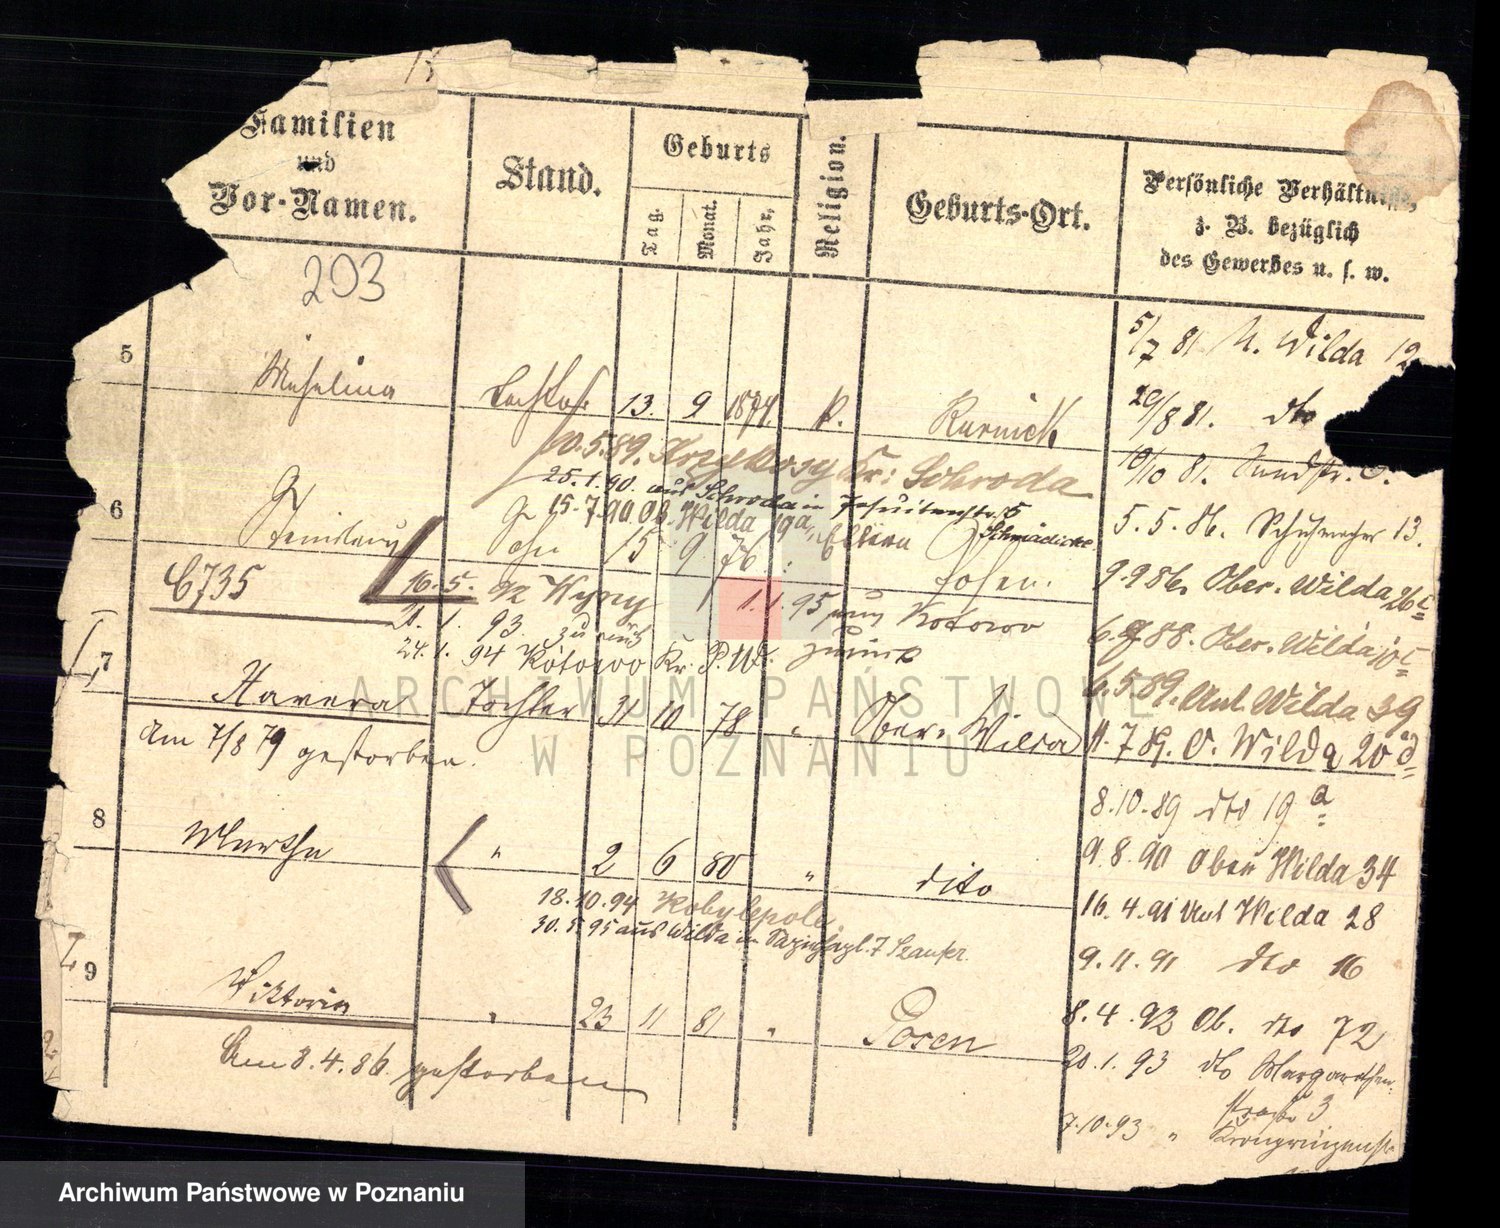 Familien
und
Vor-Namen.
Stand.
Geburts
Tag.
Monat.
Jahr,
Religion.
Geburts-Ort.
Persönliche Verhältnisse,
z. B. bezüglich
des Gewerbes u. s. w.
203
5/7 81 U. Wilda 12
5 Michalina Tochter 13. 9 1874. k. Kurnick
29/8 81. dto
10.5.89. Krzyekosy Kr: Schroda
10/10 81.
25.1.90. aus Schroda in Jesuitenstr. 5
15.7.90 Ob. Wilda 19a, Eltern
5.5.86. 13.
6 Sohn 15 9 76
E735
16.5.
1.1.95 aus Kotowo
zurück
9.9 86. Ober. Wilda 26c
21.1.93. zurück
24.1.94 Kotowo Kr. P.W.
6.9 88. Ober. Wilda
6.5 89. Unt Wilda 39
7 Tochter 31 10 78 " Ober. Wilda
11.7 89. O. Wilda 20d
Am 7/8 79 gestorben.
8.10.89 dto 19a
8 Martha " 2 6 80 " dito
9.8.90 Ober Wilda 34
18.10.94 Kobylepole
16.4.91 Unt Wilda 28
30.5.95 aus Wilda in
9.11.91 dto 16
9 Viktoria " 23 11 81 " Posen
8.4.92 Ob. dto 72
Am 8.4.86 gestorben
20.1.93 dto Margarethen-
straße 3
7.10.93 " Kronprinzenstr
ARCHIWUM PAŃSTWOWE
W POZNANIU
Archiwum Państwowe w Poznaniu